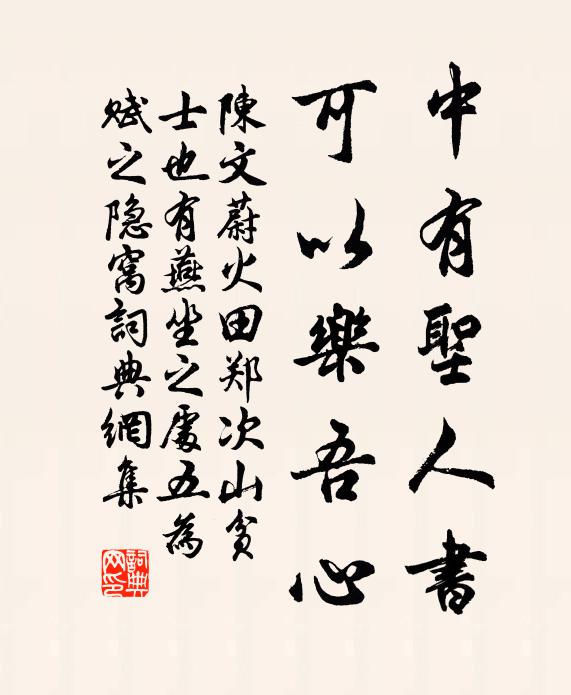 中有聖人書
可以樂吾心
陳文蔚火田郑次山貧
士也有燕坐之處五為
赋之隐窩詞典網集
詞典网印